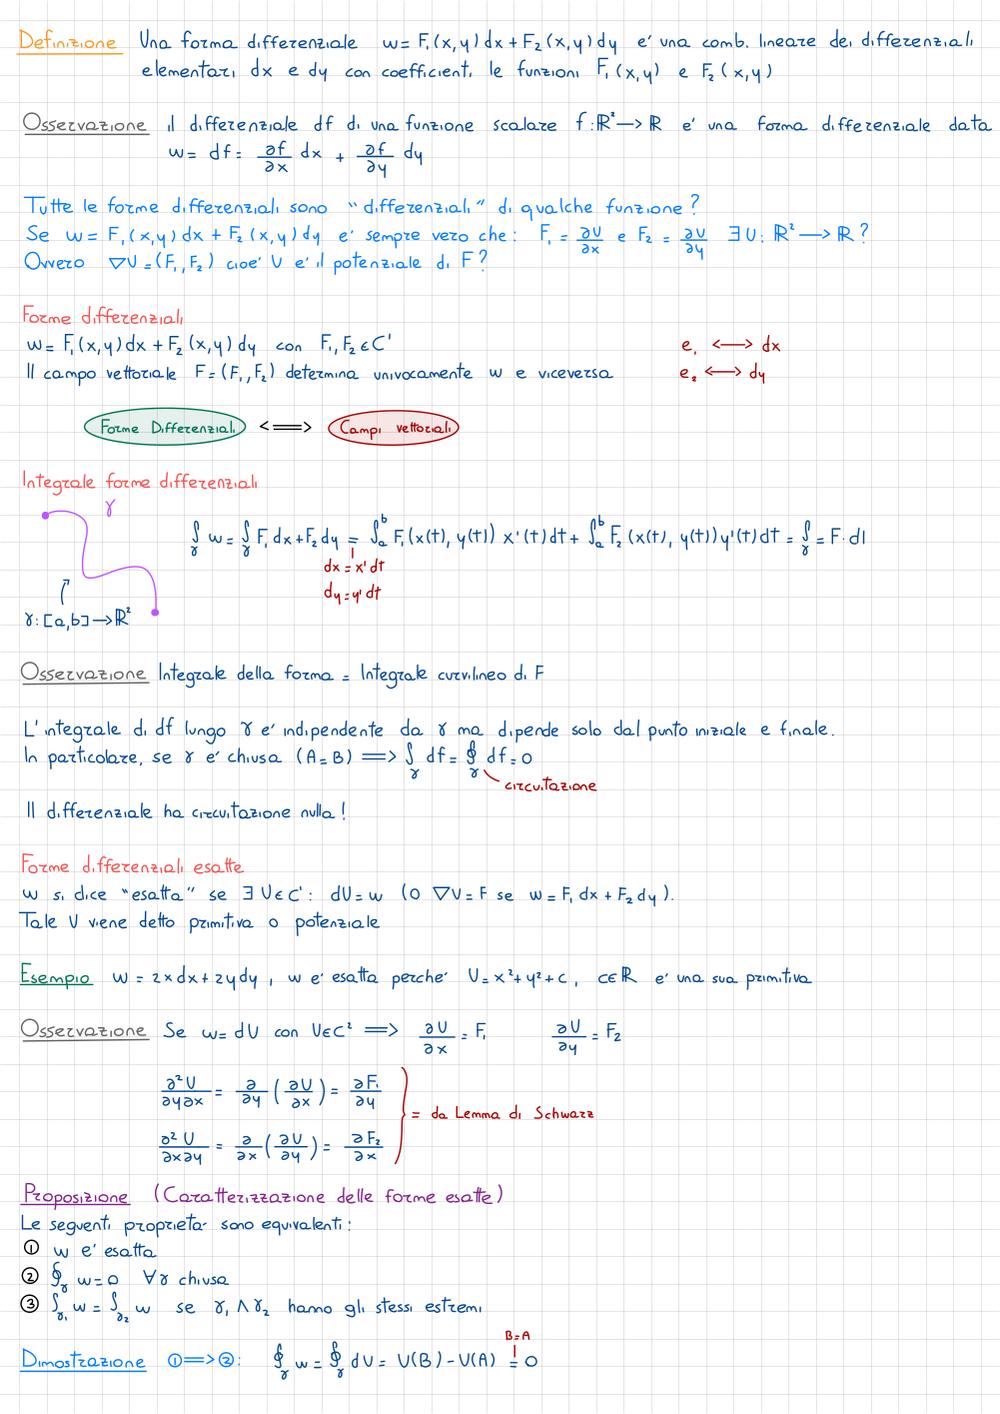 Definizione Una forma differenziale w = F₁(x,y) dx + F₂(x,y) dy e' una comb. lineare dei differenziali
elementari dx e dy con coefficienti le funzioni F₁(x,y) e F₂(x,y)
Osservazione il differenziale df di una funzione scalare f: ℝ² → ℝ e' una forma differenziale data
w = df = ∂f/∂x dx + ∂f/∂y dy
Tutte le forme differenziali sono "differenziali" di qualche funzione?
Se w = F₁(x,y) dx + F₂(x,y) dy e' sempre vero che: F₁ = ∂U/∂x e F₂ = ∂U/∂y ∃ U: ℝ² → ℝ ?
Ovvero ∇U = (F₁, F₂) cioe' U e' il potenziale di F?
Forme differenziali
w = F₁(x,y) dx + F₂(x,y) dy con F₁, F₂ ∈ C¹
e₁ ⟷ dx
Il campo vettoriale F = (F₁, F₂) determina univocamente w e viceversa
e₂ ⟷ dy
Forme Differenziali <=> Campi vettoriali
Integrale forme differenziali
γ
∫γ w = ∫γ F₁ dx + F₂ dy = ∫ₐᵇ F₁(x(t), y(t)) x'(t) dt + ∫ₐᵇ F₂(x(t), y(t)) y'(t) dt = ∫γ = F · dl
dx = x' dt
dy = y' dt
γ: [a,b] → ℝ²
Osservazione Integrale della forma = Integrale curvilineo di F
L'integrale di df lungo γ e' indipendente da γ ma dipende solo dal punto iniziale e finale.
In particolare, se γ e' chiusa (A = B) ⟹ ∫γ df = ∮γ df = 0
circuitazione
Il differenziale ha circuitazione nulla!
Forme differenziali esatte
w si dice "esatta" se ∃ U ∈ C¹: dU = w (o ∇U = F se w = F₁ dx + F₂ dy).
Tale U viene detto primitiva o potenziale
Esempio w = 2x dx + 2y dy, w e' esatta perche' U = x² + y² + c, c ∈ ℝ e' una sua primitiva
Osservazione Se w = dU con U ∈ C² ⟹ ∂U/∂x = F₁ ∂U/∂y = F₂
∂²U/∂y∂x = ∂/∂y (∂U/∂x) = ∂F₁/∂y
= da Lemma di Schwarz
∂²U/∂x∂y = ∂/∂x (∂U/∂y) = ∂F₂/∂x
Proposizione (Caratterizzazione delle forme esatte)
Le seguenti proprieta' sono equivalenti:
① w e' esatta
② ∮γ w = 0 ∀γ chiusa
③ ∫γ₁ w = ∫γ₂ w se γ₁ ∧ γ₂ hanno gli stessi estremi
B=A
Dimostrazione ① ⟹ ②: ∮γ w = ∮γ dU = U(B) - U(A) = 0